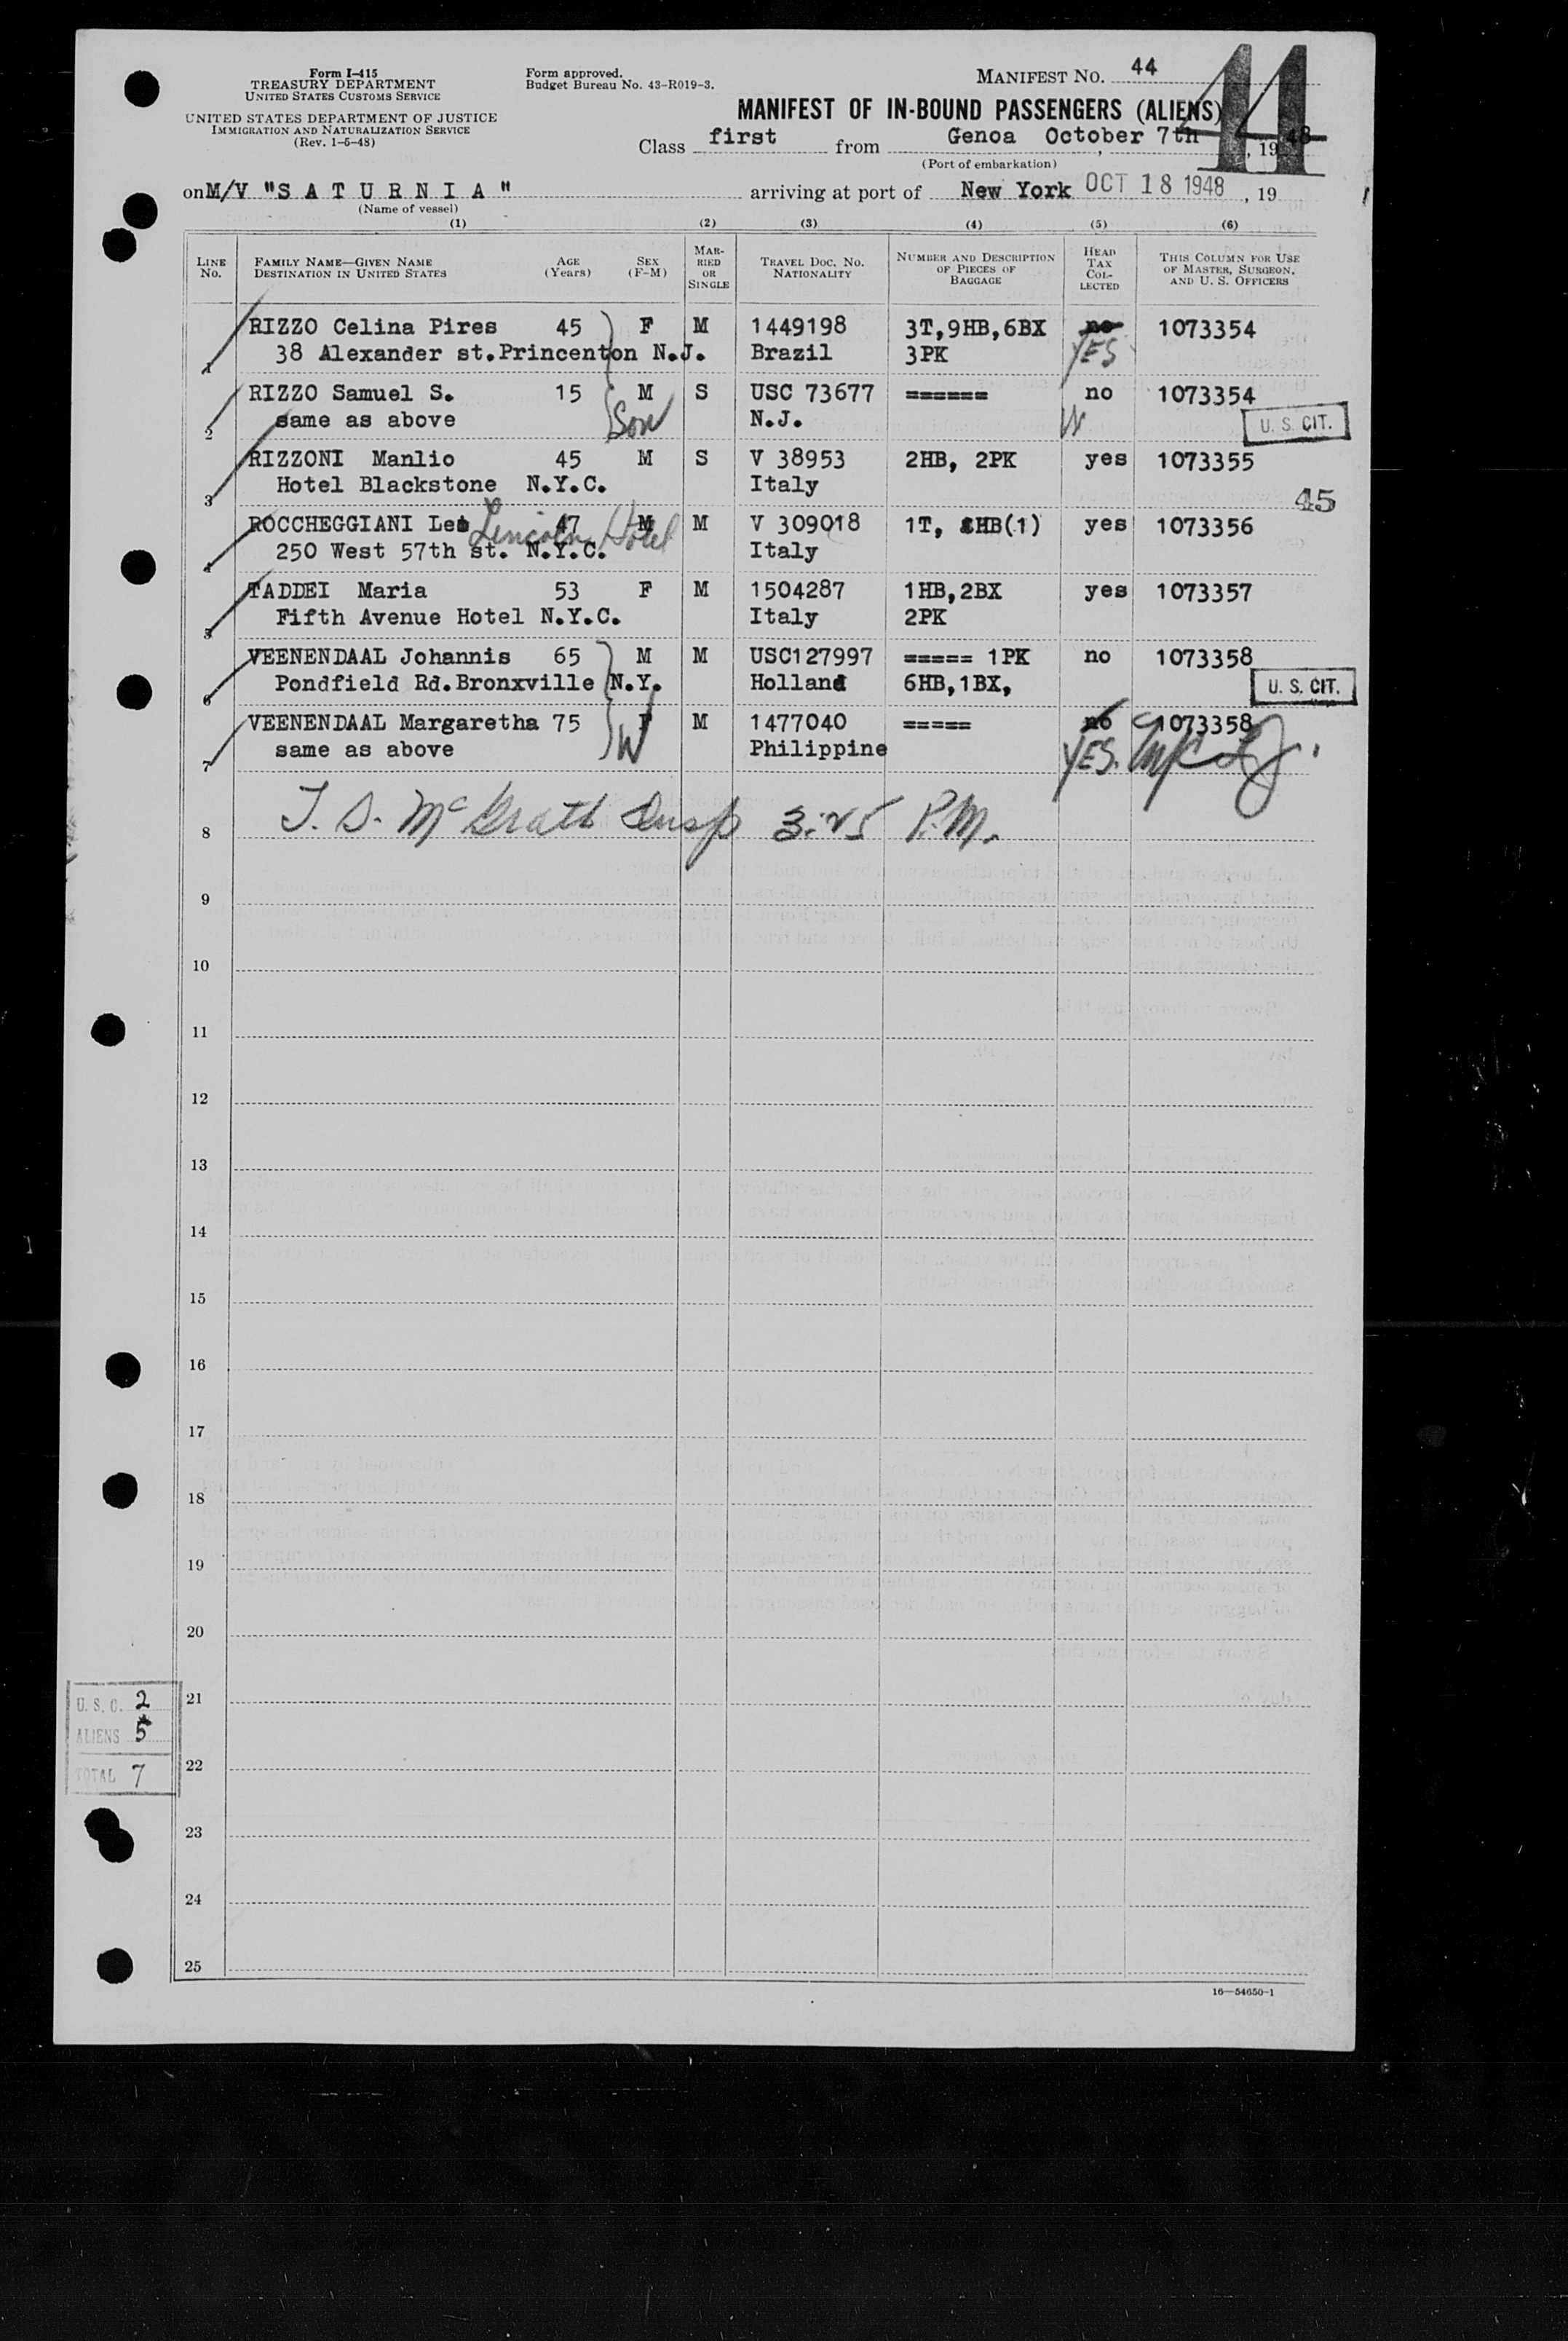 Form I-415
TREASURY DEPARTMENT
UNITED STATES CUSTOMS SERVICE
UNITED STATES DEPARTMENT OF JUSTICE
IMMIGRATION AND NATURALIZATION SERVICE
(Rev. 1-5-48)
Form approved.
Budget Bureau No. 43-R019-3.
MANIFEST NO. 44
44
MANIFEST OF IN-BOUND PASSENGERS (ALIENS)
Class first from Genoa October 7th, 1948
(Port of embarkation)
on M/V "S A T U R N I A" arriving at port of New York OCT 18 1948, 19
(Name of vessel)
(1) (2) (3) (4) (5) (6)
LINE No. FAMILY NAME—GIVEN NAME DESTINATION IN UNITED STATES AGE (Years) SEX (F-M) MARRIED OR SINGLE TRAVEL DOC. NO. NATIONALITY NUMBER AND DESCRIPTION OF PIECES OF BAGGAGE HEAD TAX COLLECTED THIS COLUMN FOR USE OF MASTER, SURGEON, AND U. S. OFFICERS
1 RIZZO Celina Pires 45 F M 1449198 3T,9HB,6BX no 1073354
38 Alexander st.Princenton N.J. Brazil 3PK YES
2 RIZZO Samuel S. 15 M S USC 73677 ====== no 1073354
same as above Son N.J. U. S. CIT.
3 RIZZONI Manlio 45 M S V 38953 2HB, 2PK yes 1073355
Hotel Blackstone N.Y.C. Italy
45
4 ROCCHEGGIANI Leo 47 M M V 309018 1T, HB(1) yes 1073356
Lincoln Hotel
250 West 57th st. N.Y.C. Italy
5 TADDEI Maria 53 F M 1504287 1HB,2BX yes 1073357
Fifth Avenue Hotel N.Y.C. Italy 2PK
6 VEENENDAAL Johannis 65 M M USC127997 ===== 1PK no 1073358
Pondfield Rd.Bronxville N.Y. Holland 6HB,1BX, U. S. CIT.
7 VEENENDAAL Margaretha 75 F M 1477040 ===== no 1073358
same as above W Philippine YES.
8 T. S. McGrath Insp 3:25 P.M.
9
10
11
12
13
14
15
16
17
18
19
20
21
22
23
24
25
U. S. C. 2
ALIENS 5
TOTAL 7
16—54650-1